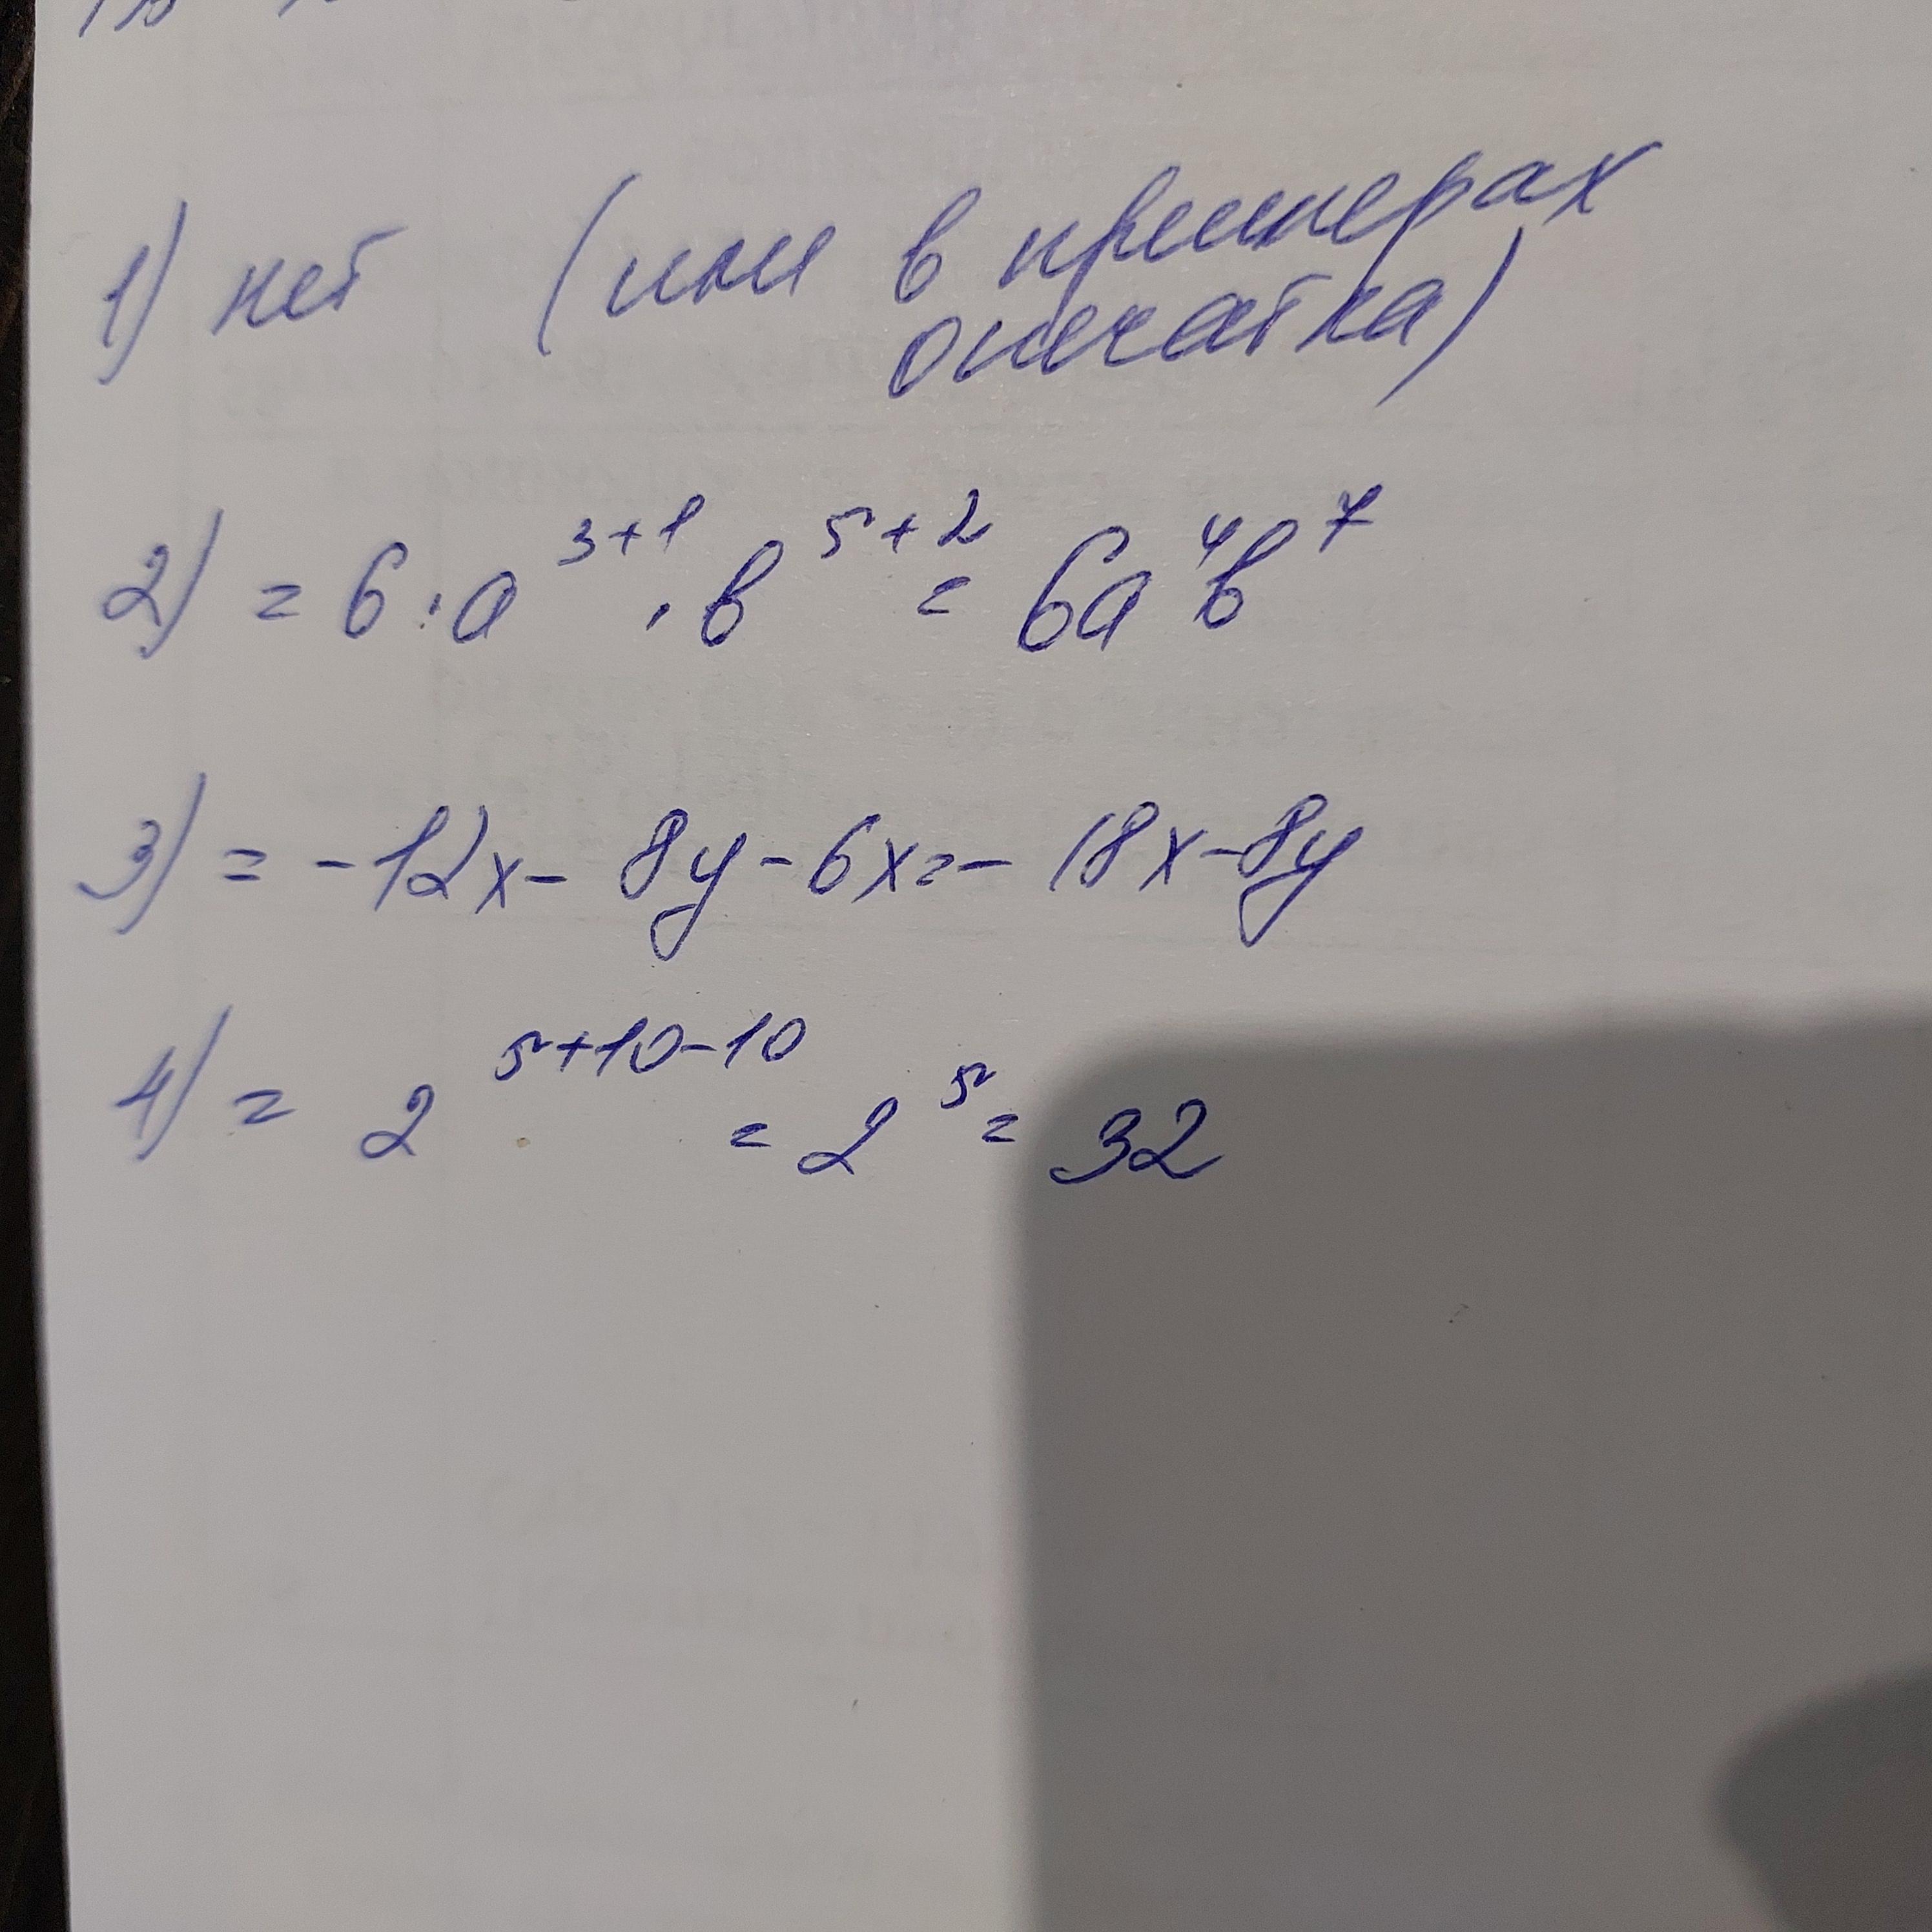 1) нет (или в примерах
опечатка)
2) = 6 · a³⁺¹ · b⁵⁺² = 6a⁴b⁷
3) = -12x - 8y - 6x = - 18x - 8y
4) = 2⁵⁺¹⁰⁻¹⁰ = 2⁵ = 32